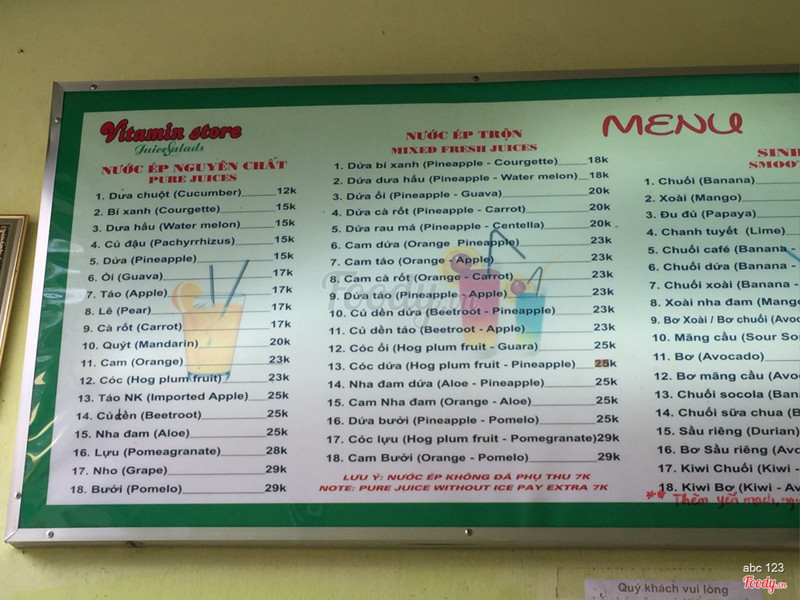 Vitamin store
JuiceSalads
NƯỚC ÉP NGUYÊN CHẤT
PURE JUICES
1. Dưa chuột (Cucumber) 12k
2. Bí xanh (Courgette) 15k
3. Dưa hấu (Water melon) 15k
4. Củ đậu (Pachyrrhizus) 15k
5. Dứa (Pineapple) 15k
6. Ổi (Guava) 17k
7. Táo (Apple) 17k
8. Lê (Pear) 17k
9. Cà rốt (Carrot) 17k
10. Quýt (Mandarin) 20k
11. Cam (Orange) 23k
12. Cóc (Hog plum fruit) 23k
13. Táo NK (Imported Apple) 25k
14. Củ dền (Beetroot) 25k
15. Nha đam (Aloe) 25k
16. Lựu (Pomeagranate) 28k
17. Nho (Grape) 29k
18. Bưởi (Pomelo) 29k
NƯỚC ÉP TRỘN
MIXED FRESH JUICES
1. Dứa bí xanh (Pineapple - Courgette) 18k
2. Dứa dưa hấu (Pineapple - Water melon) 18k
3. Dứa ổi (Pineapple - Guava) 20k
4. Dứa cà rốt (Pineapple - Carrot) 20k
5. Dứa rau má (Pineapple - Centella) 20k
6. Cam dứa (Orange Pineapple) 23k
7. Cam táo (Orange - Apple) 23k
8. Cam cà rốt (Orange - Carrot) 23k
9. Dứa táo (Pineapple - Apple) 23k
10. Củ dền dứa (Beetroot - Pineapple) 23k
11. Củ dền táo (Beetroot - Apple) 23k
12. Cóc ổi (Hog plum fruit - Guara) 25k
13. Cóc dứa (Hog plum fruit - Pineapple) 25k
14. Nha đam dứa (Aloe - Pineapple) 25k
15. Cam Nha đam (Orange - Aloe) 25k
16. Dứa bưởi (Pineapple - Pomelo) 25k
17. Cóc lựu (Hog plum fruit - Pomegranate) 29k
18. Cam Bưởi (Orange - Pomelo) 29k
LƯU Ý: NƯỚC ÉP KHÔNG ĐÁ PHỤ THU 7K
NOTE: PURE JUICE WITHOUT ICE PAY EXTRA 7K
MENU
SINH
SMOO
1. Chuối (Banana)
2. Xoài (Mango)
3. Đu đủ (Papaya)
4. Chanh tuyết (Lime)
5. Chuối café (Banana -
6. Chuối dứa (Banana -
7. Chuối xoài (Banana -
8. Xoài nha đam (Mango
9. Bơ Xoài / Bơ chuối (Avoc
10. Mãng cầu (Sour So
11. Bơ (Avocado)
12. Bơ mãng cầu (Avoc
13. Chuối socola (Bana
14. Chuối sữa chua (B
15. Sầu riêng (Durian)
16. Bơ Sầu riêng (Avo
17. Kiwi Chuối (Kiwi -
18. Kiwi Bơ (Kiwi - Av
** Thêm yến mạch, ng
Foody.vn
Quý khách vui lòng
abc 123
Foody.vn